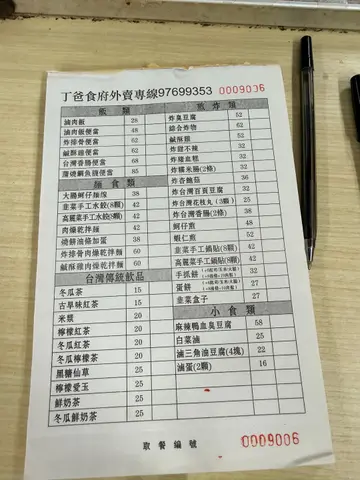 丁爸食府外賣專線97699353 0009006
飯類
滷肉飯 28
滷肉飯便當 48
炸排骨便當 62
鹹酥雞便當 62
台灣香腸便當 68
蒲燒鯛魚腹便當 68
麵食類
大腸蚵仔麵線 38
韭菜手工水餃(8顆) 42
高麗菜手工水餃(8顆) 42
肉燥乾拌麵 42
燒餅油條加蛋 38
炸排骨肉燥乾拌麵 60
鹹酥雞肉燥乾拌麵 60
台灣傳統飲品
冬瓜茶 15
古早味紅茶 15
米漿 20
檸檬紅茶 20
冬瓜紅茶 20
冬瓜檸檬茶 20
黑糖仙草 25
檸檬愛玉 25
鮮奶茶 25
冬瓜鮮奶茶 25
煎炸類
炸臭豆腐 52
綜合炸物 62
鹹酥雞 52
炸甜不辣 32
炸豬血糕 32
炸糯米腸(2條) 32
炸杏鮑菇 36
炸台灣百頁豆腐 32
炸台灣花枝丸(3顆) 25
炸台灣香腸(2條) 38
蚵仔煎 48
蝦仁煎 52
韭菜手工鍋貼(8顆) 42
高麗菜手工鍋貼(8顆) 42
手抓餅 32
蛋餅 27
韭菜盒子 27
小食類
麻辣鴨血臭豆腐 58
白菜滷 25
滷三角油豆腐(4塊) 22
滷蛋(2顆) 16
取餐編號 0009006